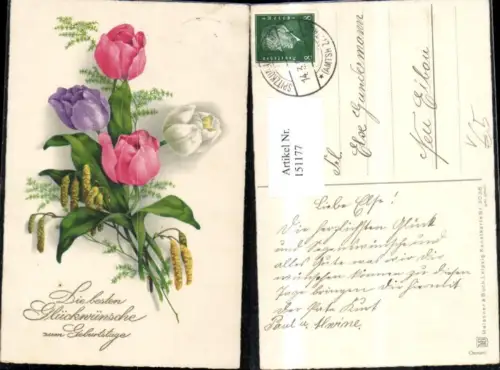 Die besten
Glückwünsche
zum Geburtstage
8
8
Artikel Nr.
151177
Frl.
Else Gundelsmann
Neu Eibau
Liebe Else!
Die herzlichsten Glück
und Segenwünsche und
alles Gute was wir dir
wünschen können zu diesem
Tage bringen dir hiermit
der Pate Kurt
Paul u. Alwine.
Meissner & Buch, Leipzig